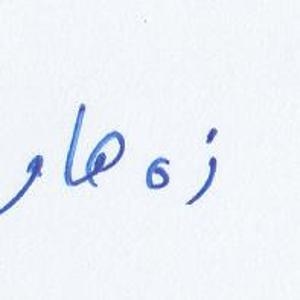 زەهاو